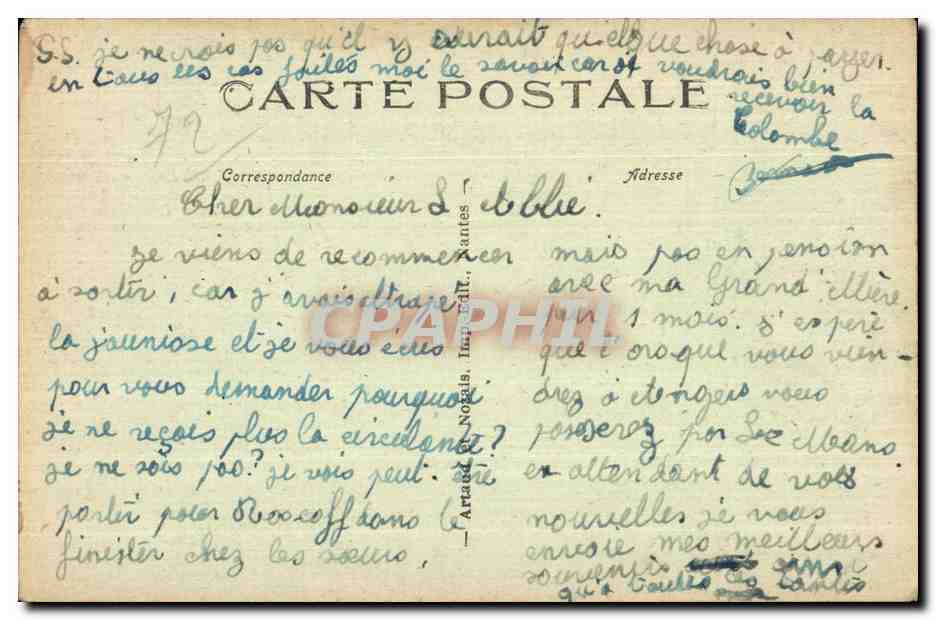 S.S. je ne crois pas qu'il y aurait quelque chose à payer.
en tous les cas faites moi le savoir car je voudrais bien
recevoir la
Colombe
CARTE POSTALE
72
Correspondance
Adresse
Cher Monsieur L'Abbé.
je viens de recommencer
à sortir, car j'avais attrapé
la jaunisse et je vous écris
pour vous demander pourquoi
je ne reçois plus la circulante?
je ne sais pas? je vais peut-être
partir pour Roscoff dans le
finistér chez les sœurs,
— Artaud et Nozais. Imp.-Edit., Nantes —
mais pas en pension
avec ma Grand'Mère
pour 1 mois. J'espère
que lorsque vous vien-
drez à Angers vous
passerez par Le Mans
en attendant de vos
nouvelles je vous
envoie mes meilleurs
souvenirs ainsi
qu'à toutes les tantes
CPAPHIL